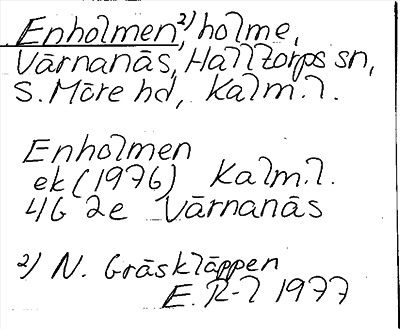 Enholmen²⁾ holme,
Värnanäs, Halltorps sn,
S. Möre hd, Kalm. l.
Enholmen
ek (1976) Kalm. l.
4G 2e Värnanäs
²⁾ N. Gräskläppen
E. R-l 1977